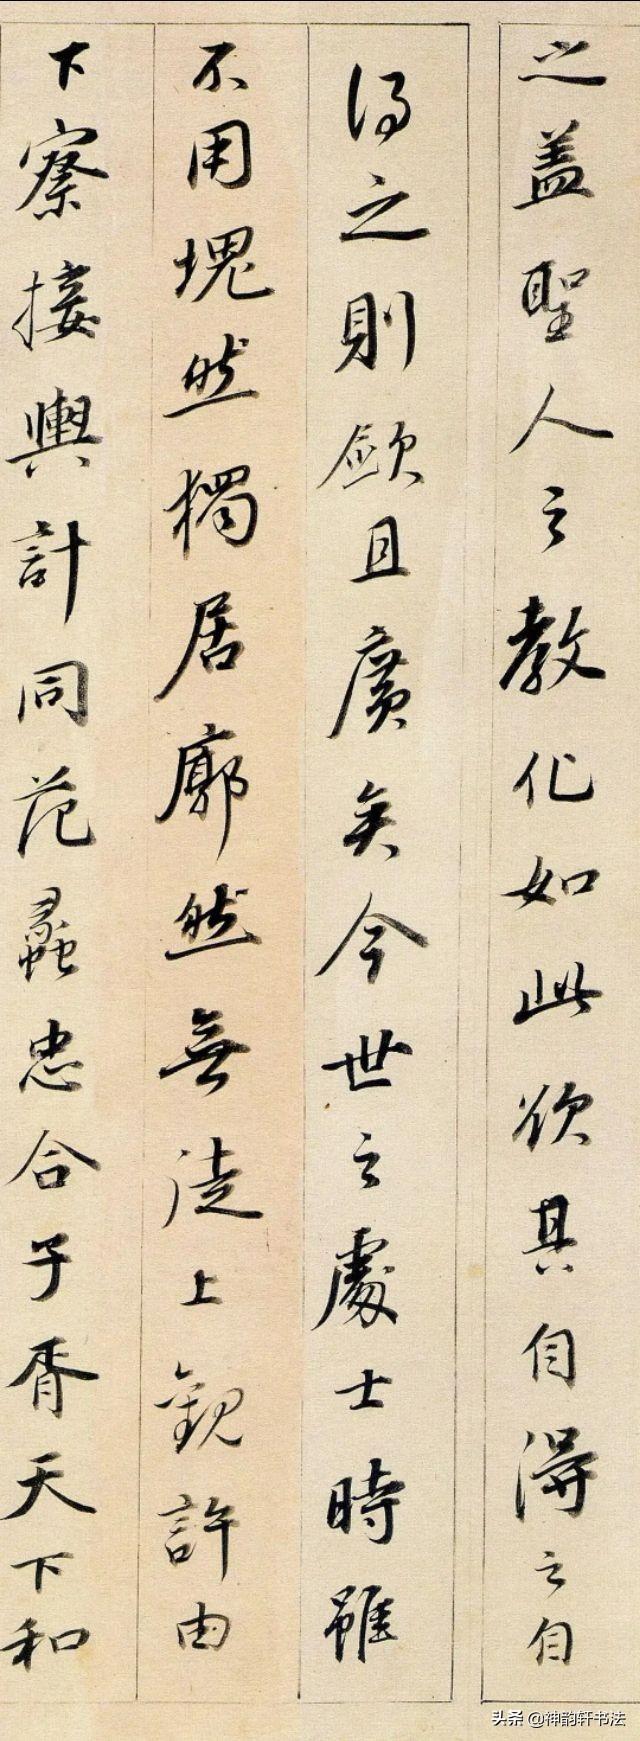 之蓋聖人之教化如此欲其自得之自
得之則敏且廣矣今世之處士時雖
不用塊然獨居廓然無徒上觀許由
下察接輿計同范蠡忠合子胥天下和
头条 @神韵轩书法